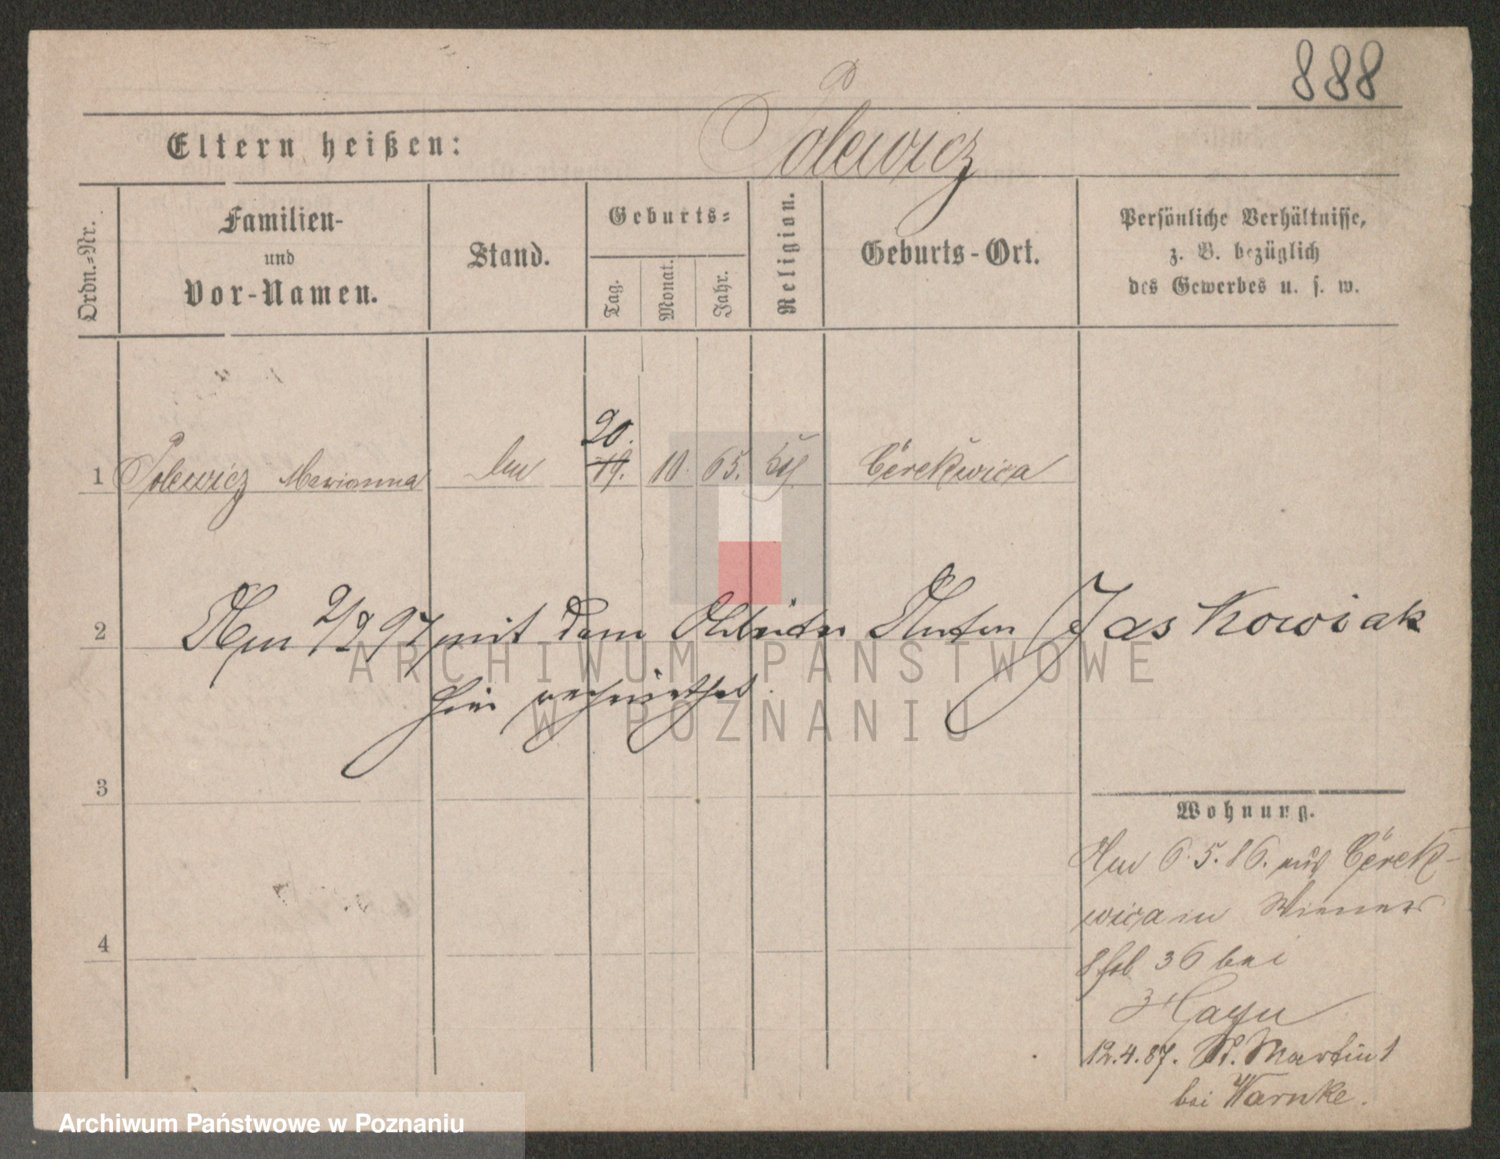 888
Eltern heißen: Polewicz
Ordn.-Nr.
Familien-
und
Vor-Namen.
Stand.
Geburts-
Tag.
Monat.
Jahr.
Religion.
Geburts-Ort.
Persönliche Verhältnisse,
z. B. bezüglich
des Gewerbes u. s. w.
20.
1 Polewicz Marianna 19. 10. 65. Cerekwica
2 Am 2/9 97 mit dem Arbeiter Anton Jaskowiak
hier verheirathet
ARCHIWUM PAŃSTWOWE
W POZNANIU
3
Wohnung.
Am 6.5.86. aus Cerek-
wica in Wiener
36 bei
4
12.4.87. St. Martin 1
bei Warnke.
Archiwum Państwowe w Poznaniu